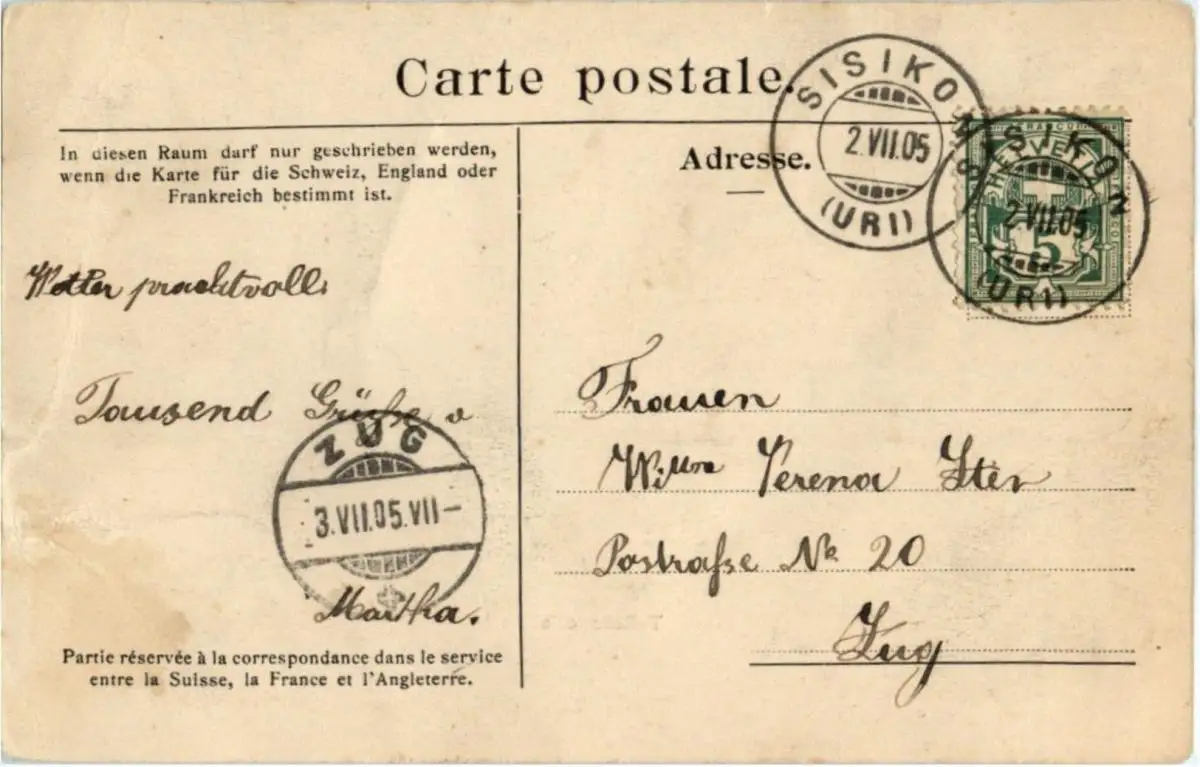 Carte postale.
In diesen Raum darf nur geschrieben werden,
wenn die Karte für die Schweiz, England oder
Frankreich bestimmt ist.
Adresse.
SISIKON
2.VII.05
(URI)
SISIKON
2.VII.05
(URI)
FRANCO
HELVETIA
5
Wetter prachtvoll.
Tausend Grüße v
ZUG
3.VII.05.VII–
Martha.
Frauen
Wittwe Verena Iten
Postraße No 20
Zug
Partie réservée à la correspondance dans le service
entre la Suisse, la France et l'Angleterre.